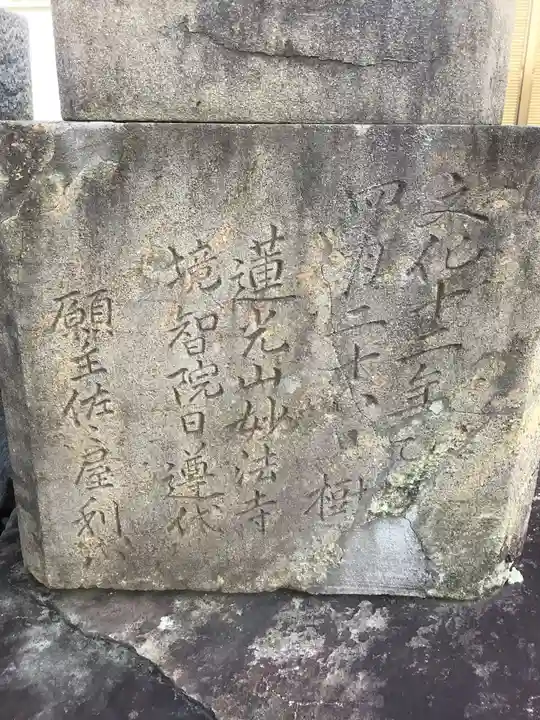 文化十二年
四月二十八日 樹
蓮光山妙法寺
境智院日遵代
願主佐々屋利八